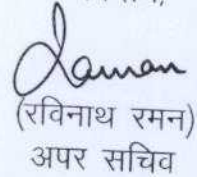 Raman
(रविनाथ रमन)
अपर सचिव